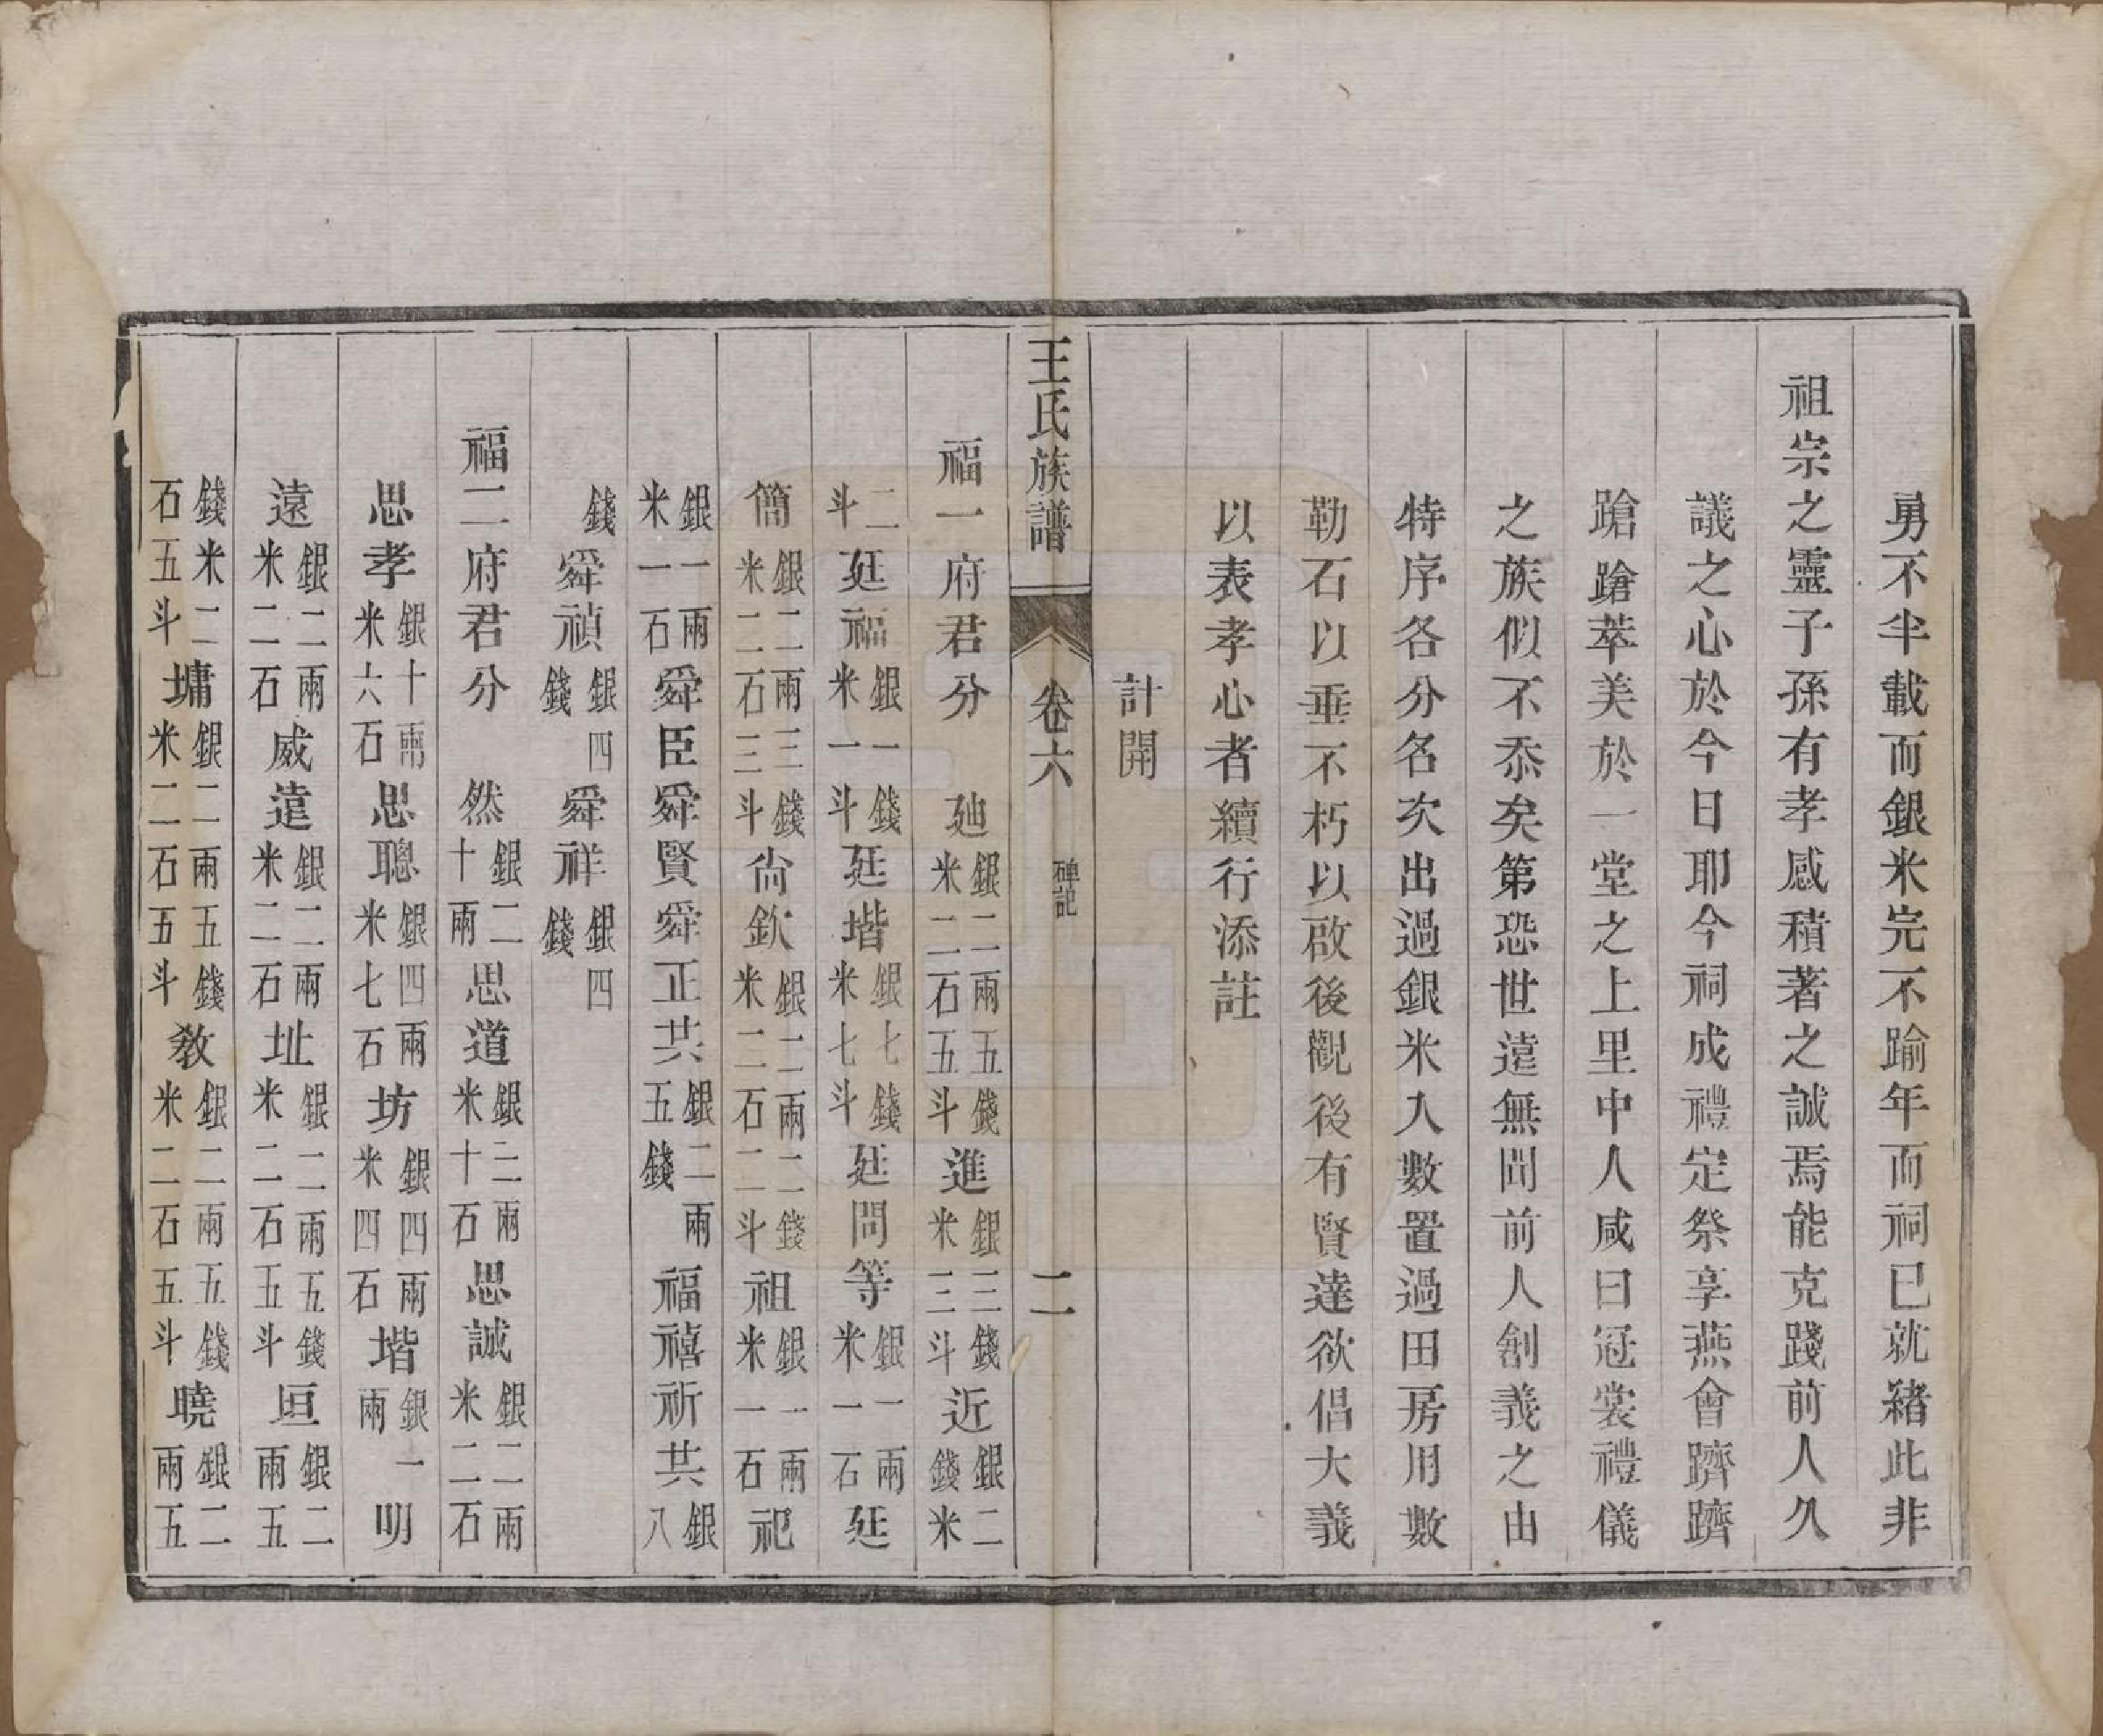 勇不半載而銀米完不踰年而祠已就緒此非
祖宗之靈子孫有孝感積著之誠焉能克踐前人久
議之心於今日耶今祠成禮定祭享燕會躋躋
蹌蹌萃美於一堂之上里中人咸曰冠裳禮儀
之族似不忝矣第恐世遠無問前人創義之由
特序各分名次出過銀米人數置過田房用數
勒石以垂不朽以啟後觀後有賢達欲倡大義
以表孝心者續行添註
計開
王氏族譜 卷六 碑記 二
福一府君分 廸銀二兩五錢米二石五斗進銀三錢米三斗近銀二錢米
二斗廷福銀一錢米一斗廷堦銀七錢米七斗廷問等銀一兩米一石廷
簡銀二兩三錢米二石三斗尙欽銀二兩二錢米二石二斗祖銀一兩米一石祀
銀一兩米一石舜臣舜賢舜正共銀二兩五錢福禧祈共銀八
錢舜禎銀四錢舜祥銀四錢
福二府君分 然銀二十兩思道銀三兩米十石思誠銀二兩米二石
思孝銀十兩米六石思聰銀四兩米七石坊銀四兩米四石堦銀一兩明
遠銀二兩米二石威遠銀二兩米二石址銀二兩五錢米二石五斗垣銀二兩五
錢米二石五斗墉銀二兩五錢米二石五斗敎銀二兩五錢米二石五斗曉銀二兩五